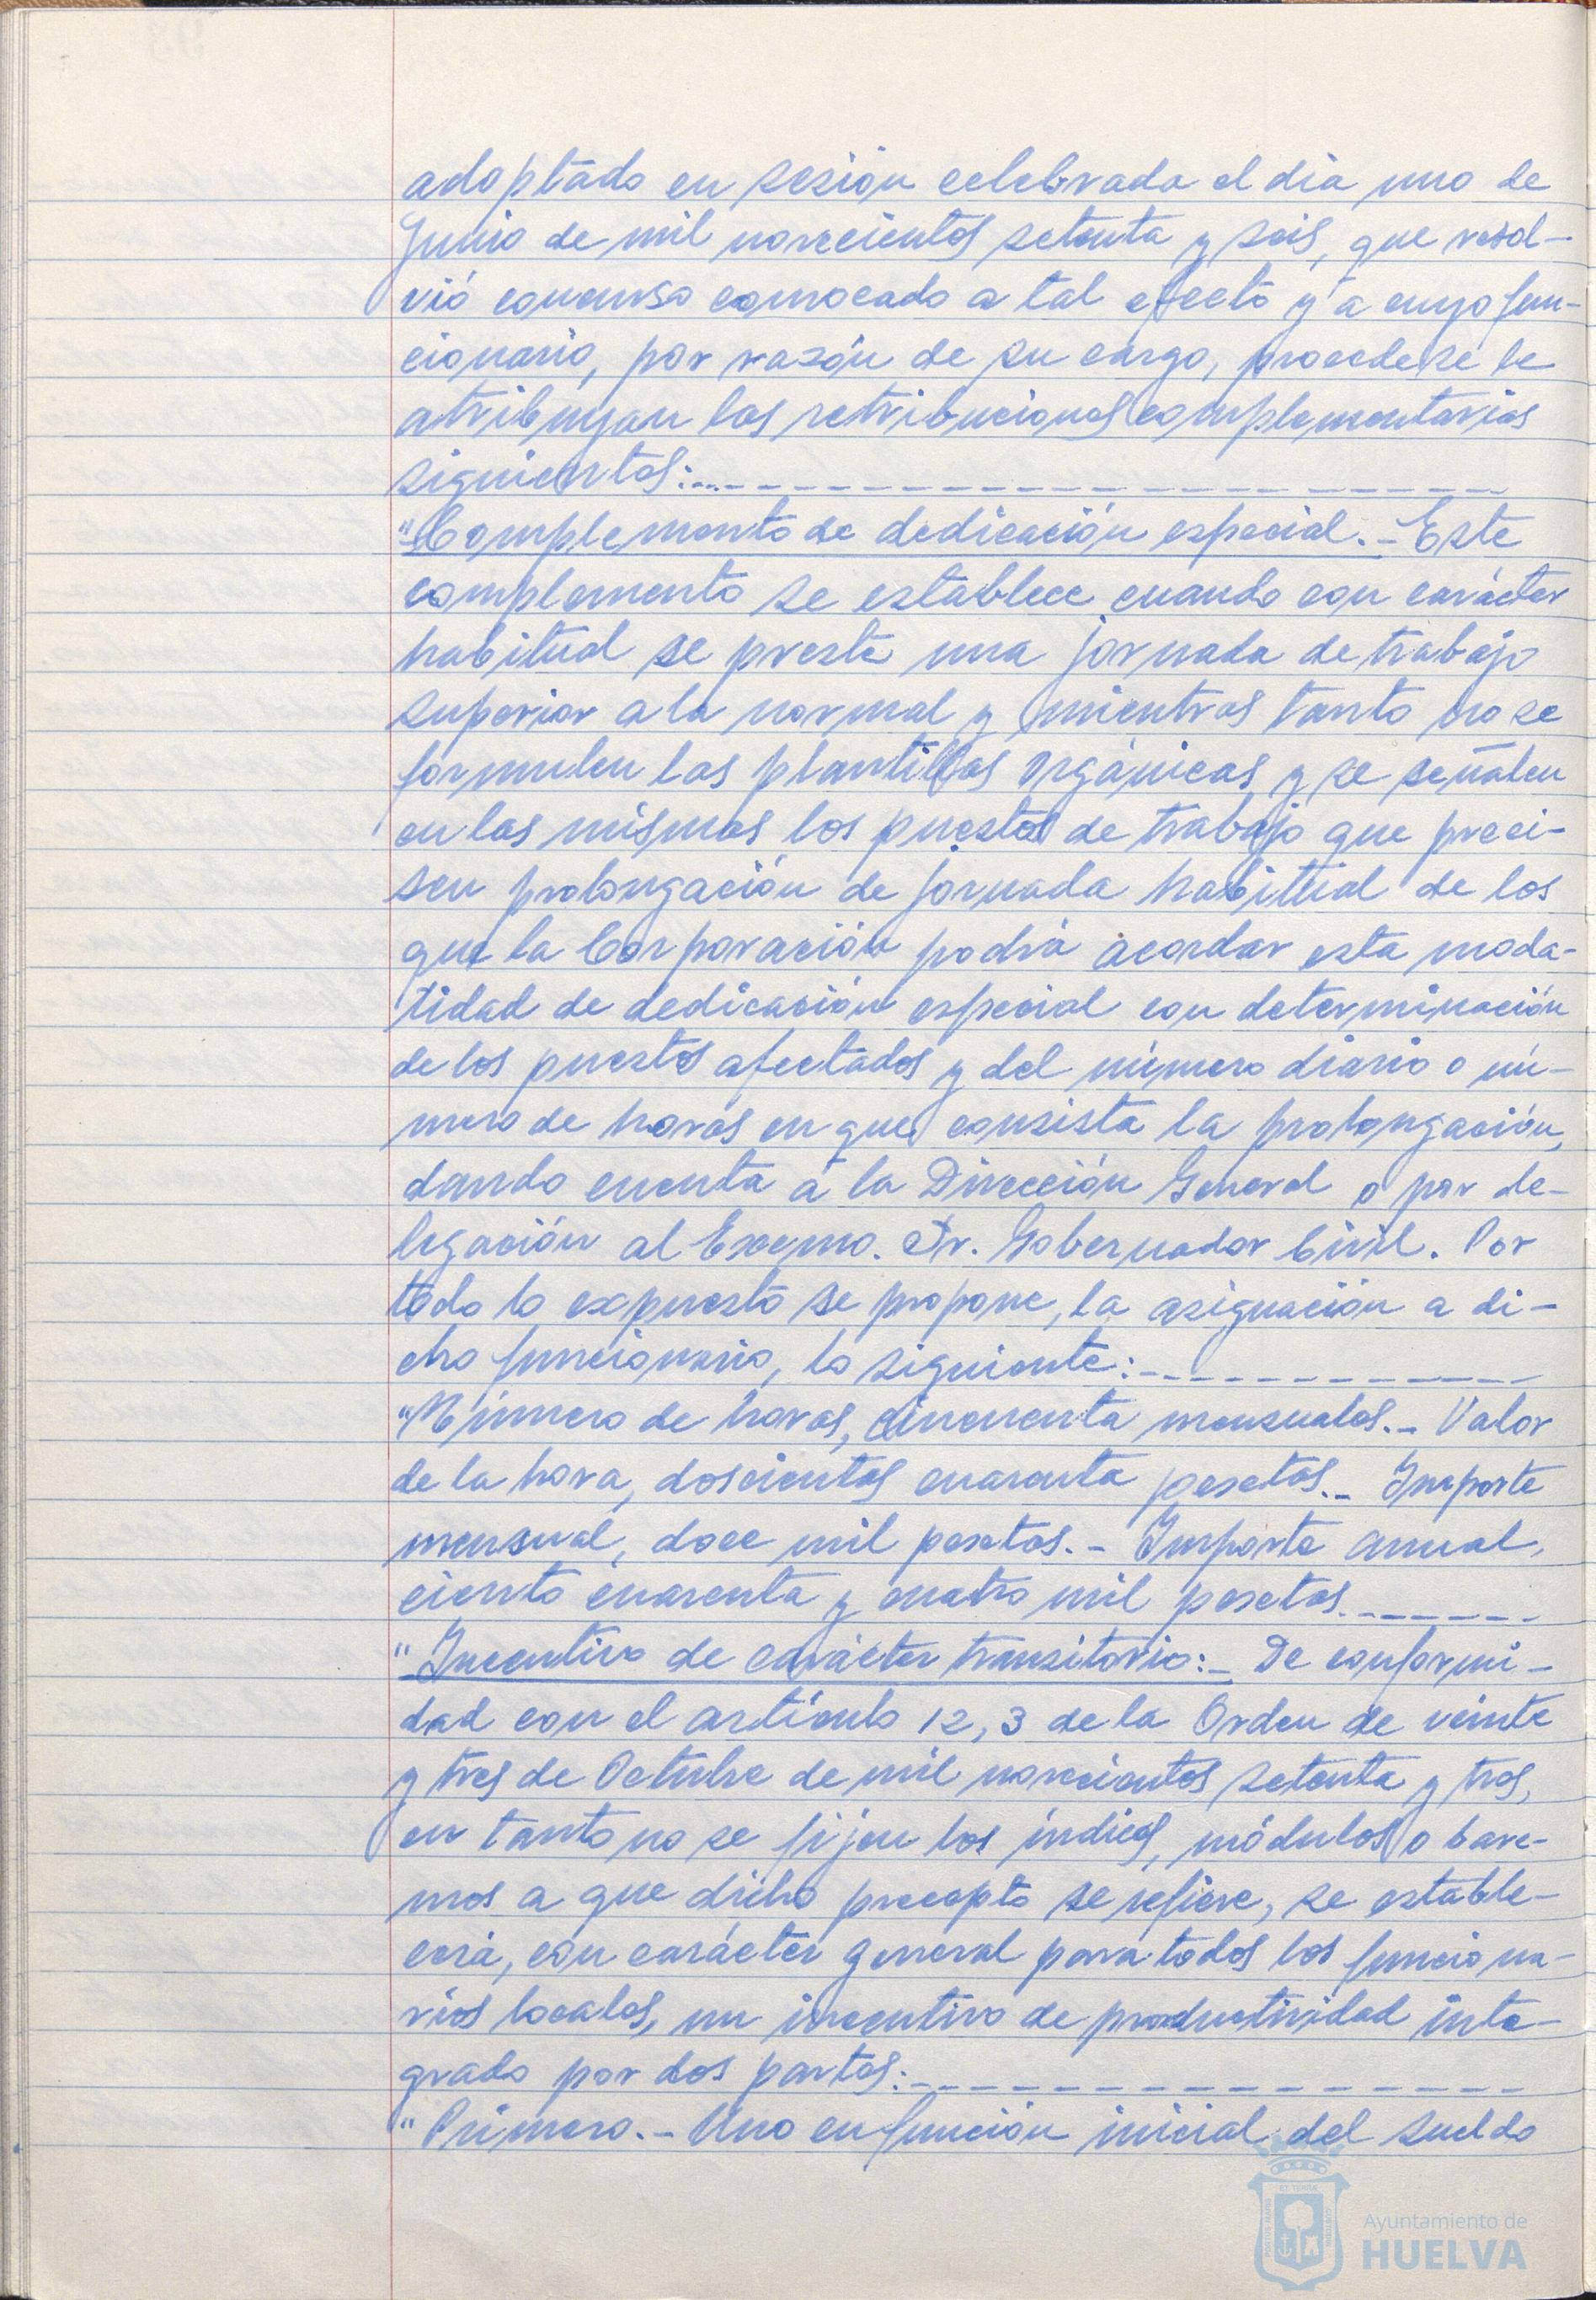 adoptado en sesión celebrada el día uno de
Junio de mil novecientos setenta y seis, que resol-
vió concurso convocado a tal efecto y a cuyo fun-
cionario, por razón de su cargo, procede se le
atribuyan las retribuciones complementarias
siguientes:
"Complemento de dedicación especial.- Este
complemento se establece cuando con carácter
habitual se preste una jornada de trabajo
superior a la normal y mientras tanto no se
formulen las plantillas orgánicas y se señalen
en las mismas los puestos de trabajo que preci-
sen prolongación de jornada habitual de los
que la Corporación podrá acordar esta moda-
lidad de dedicación especial con determinación
de los puestos afectados y del número diario o nú-
mero de horas en que consista la prolongación,
dando cuenta a la Dirección General o por de-
legación al Excmo. Sr. Gobernador Civil. Por
todo lo expuesto se propone, la asignación a di-
cho funcionario, lo siguiente:
"Número de horas, cincuenta mensuales.- Valor
de la hora, doscientas cuarenta pesetas.- Importe
mensual, doce mil pesetas.- Importe anual,
ciento cuarenta y cuatro mil pesetas.
"Incentivo de carácter transitorio:- De conformi-
dad con el artículo 12,3 de la Orden de veinte
y tres de Octubre de mil novecientos setenta y tres,
en tanto no se fijen los índices, módulos o bare-
mos a que dicho precepto se refiere, se estable-
cerá, con carácter general para todos los funciona-
rios locales, un incentivo de productividad inte-
grado por dos partes:
"Primero.- Uno en función inicial del sueldo
Ayuntamiento de
HUELVA